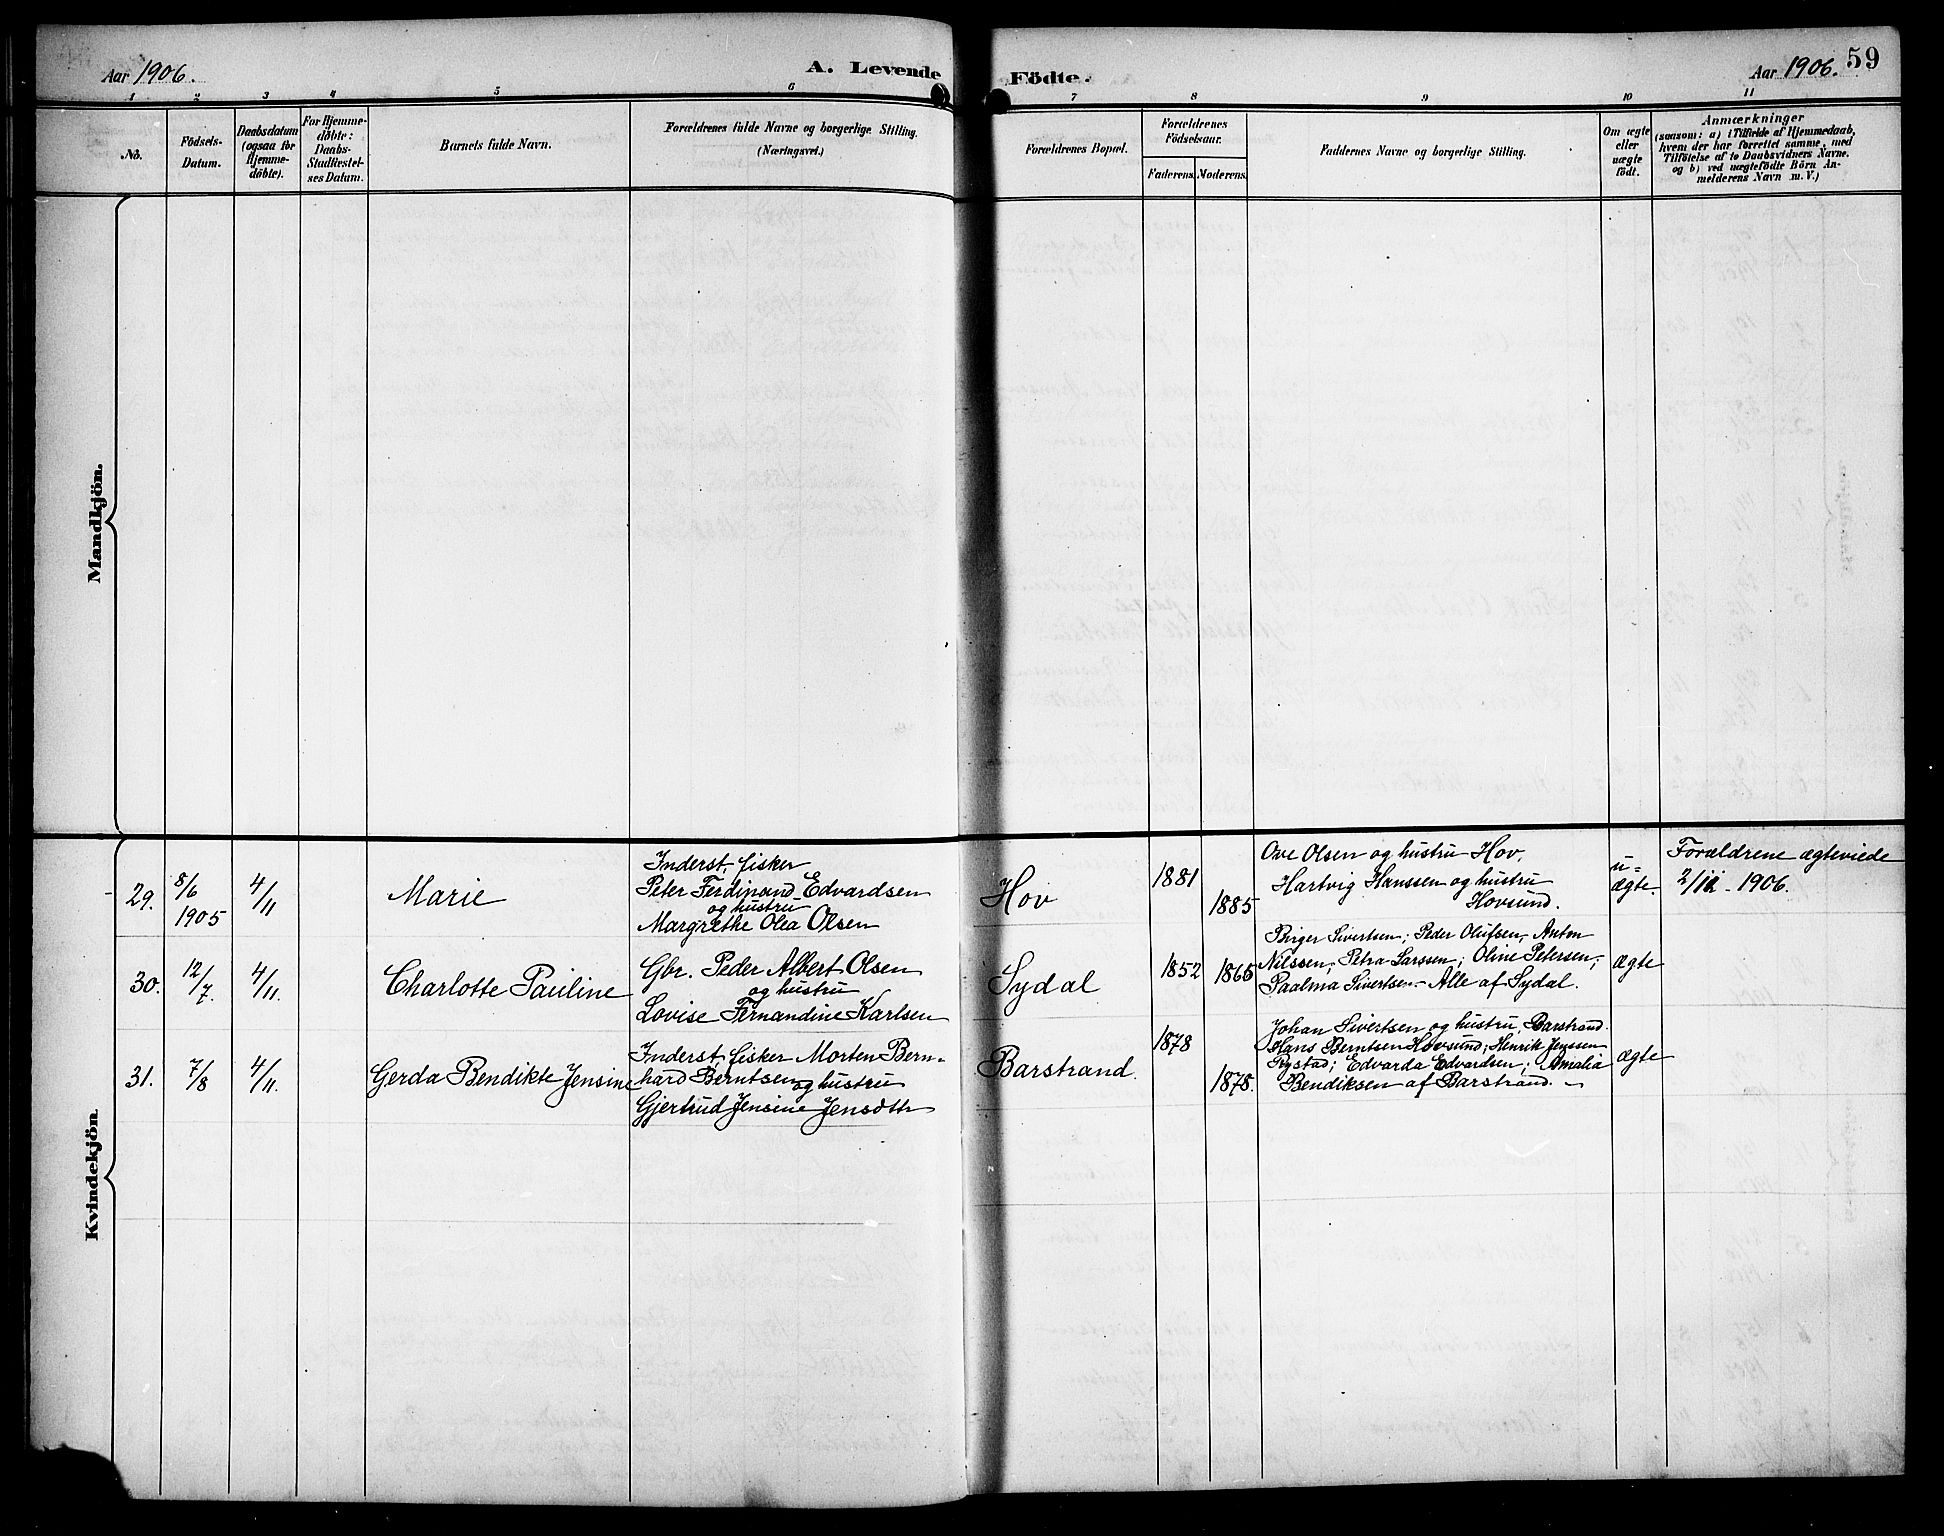 Aar 1906.
A. Levende Födte.
Aar 1906. 59
1 2 3 4 5 6 7 8 9 10 11
No.
Födsels-
Datum.
Daabsdatum
(ogsaa for
Hjemme-
döbte).
For Hjemme-
döbte:
Daabs-
Stadfæstel-
ses Datum.
Barnets fulde Navn.
Forældrenes fulde Navne og borgerlige Stilling.
(Næringsvei.)
Forældrenes Bopæl.
Forældrenes
Födselsaar.
Faderens. Moderens.
Faddernes Navne og borgerlige Stilling.
Om ægte
eller
uægte
födt.
Anmærkninger
(saasom: a) i Tilfælde af Hjemmedaab,
hvem der har forrettet samme, med
Tilföielse af to Daabsvidners Navne.
og b) ved uægtefödte Börn An-
melderens Navn m. V.)
Mandkjön.
Kvindekjön.
29.
8/6
1905
4/11
Marie
Inderst, fisker
Peter Ferdinand Edvardsen
og hustru
Margrethe Olea Olsen
Hov
1881
1885
Ove Olsen og hustru Hov,
Hartvig Hanssen og hustru
Hovsund.
u-
ægte.
Forældrene ægteviede
2/11 - 1906.
30.
12/7.
4/11.
Charlotte Pauline
Gbr. Peder Albert Olsen
og hustru
Lovise Fernandine Karlsen
Sydal
1852
1865
Birger Sivertsen; Peder Olufsen, Anton
Nilssen, Petra Larssen; Oline Petersen;
Paalma Sivertsen. - Alle af Sydal.
ægte
31.
7/8
4/11.
Gerda Bendikte Jensine
Inderst, fisker Morten Bern-
hard Berntsen og hustru
Gjertrud Jensine Jensdttr
Barstrand.
1878
1878.
Johan Sivertsen og hustru, Barstrand.
Hans Berntsen Hovsund; Henrik Jenssen
Rystad; Edvarda Edvardsen; Amalia
Bendiksen af Barstrand. -
ægte